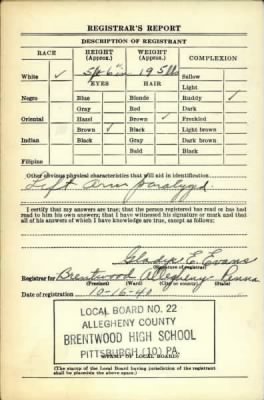 REGISTRAR'S REPORT
DESCRIPTION OF REGISTRANT
RACE HEIGHT (Approx.) WEIGHT (Approx.) COMPLEXION
White ✓ 5 ft 6 in 195 lbs Sallow
EYES HAIR Light
Negro Blue Blonde Ruddy ✓
Gray Red Dark
Oriental Hazel Brown ✓ Freckled
Brown ✓ Black Light brown
Indian Black Gray Dark brown
Bald Black
Filipino
Other obvious physical characteristics that will aid in identification
Left Arm paralyzd.
I certify that my answers are true; that the person registered has read or has had
read to him his own answers; that I have witnessed his signature or mark and that
all of his answers of which I have knowledge are true, except as follows:
Gladys E. Evans
(Signature of registrar)
Registrar for Brentwood Allegheny Penna
(Precinct) (Ward) (City or county) (State)
Date of registration 10-16-40
LOCAL BOARD NO. 22
ALLEGHENY COUNTY
BRENTWOOD HIGH SCHOOL
PITTSBURGH (10) PA.
(STAMP OF LOCAL BOARD)
(The stamp of the Local Board having jurisdiction of the registrant
shall be placed in the above space.)